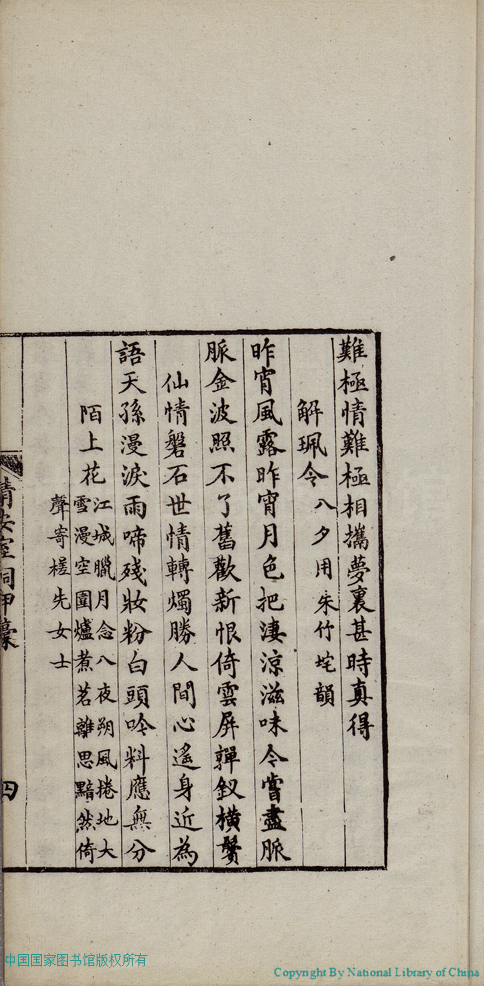 難極情難極相攜夢裏甚時真得
解珮令八夕用朱竹垞韻
昨宵風露昨宵月色把淒涼滋味今嘗盡脈
脈金波照不了舊歡新恨倚雲屏嚲釵橫鬢
仙情磐石世情轉燭勝人間心遙身近為
語天孫漫淚雨啼殘妝粉白頭吟料應無分
陌上花江城臘月念八夜朔風捲地大
雪漫空圍爐煮茗離思黯然倚
聲寄槎先女士
情

室詞甲稾
四
中国国家图书馆版权所有
Copyright By National Library of China